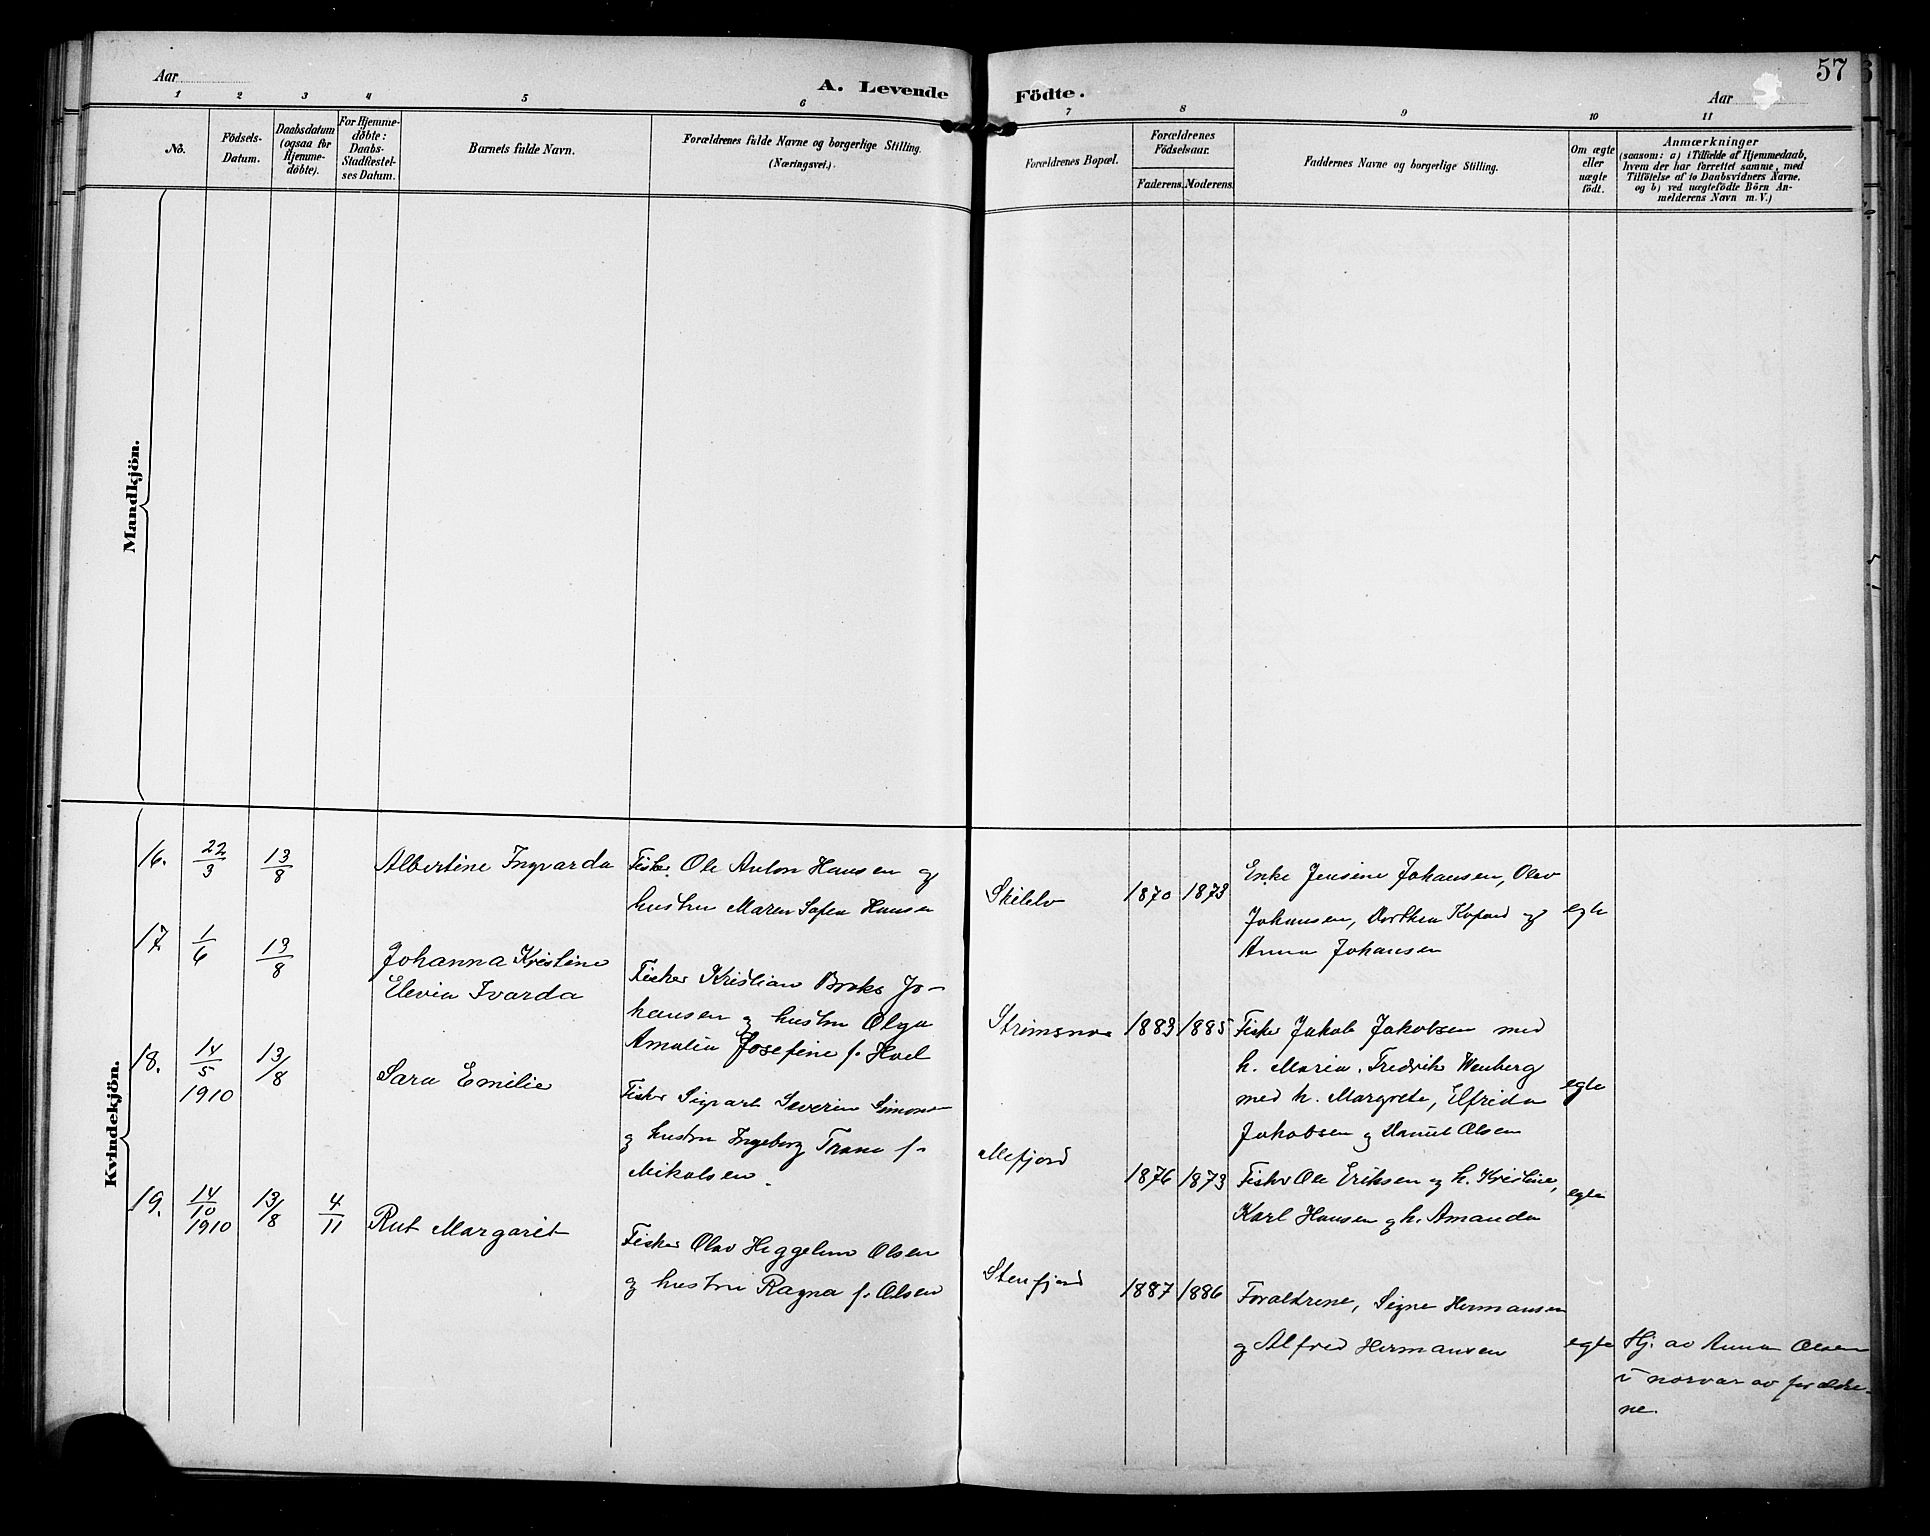 57
Aar
A. Levende Födte.
Aar
1 2 3 4 5 6 7 8 9 10 11
No.
Födsels-
Datum.
Daabsdatum
(ogsaa for
Hjemme-
döbte).
For Hjemme-
döbte:
Daabs-
Stadfæstel-
ses Datum.
Barnets fulde Navn.
Forældrenes fulde Navne og borgerlige Stilling.
(Næringsvei.)
Forældrenes Bopæl.
Forældrenes
Födselsaar.
Faderens. Moderens.
Faddernes Navne og borgerlige Stilling.
Om ægte
eller
uægte
födt.
Anmærkninger
(saasom: a) i Tilfælde af Hjemmedaab,
hvem der har forrettet samme, med
Tilföielse af to Daabsvidners Navne,
og b) ved uægtefödte Börn An-
melderens Navn m. V.)
Mandkjön.
Kvindekjön.
16. 22/3 13/8
Albertine Ingvarda
Fisker Ole Anton Hansen og
hustru Maren Sofea Hansen
1870 1873
Enke Jensine Johansen, Olav
Johansen, Dorthea og
Anna Johansen
egte
17 1/6 13/8
Johanna Kristine
Elevia Ivarda
Fisker Kristian Broks Jo-
hansen og hustru Olga
Amalia Josefine f. Hoel
Strømsnes
1883 1885
Fisker Jakob Jakobsen med
h. Maria, Fredrik Wenberg
med h. Margrete, Elfrida
Jakobsen og Daniel Olsen
egte
18. 14/5 1910 13/8
Sara Emilie
Fisker Sigvart Severin Simons
og hustru Ingeborg Trane f.
Mikalsen.
Mefjord
1876 1873
Fisker Ole Eriksen og h. Kristine,
Karl Hansen og h. Amanda
egte
19. 14/10 1910 13/8 4/11
Rut Margaret
Fisker Olav Heggelund Olsen
og hustru Ragna f. Olsen
Stenfjord
1887 1886
Forældrene, Signe Hermansen
og Alfred Hermansen
egte
Hj. av Anna Olsen
i nærvær av forældre-
ne.